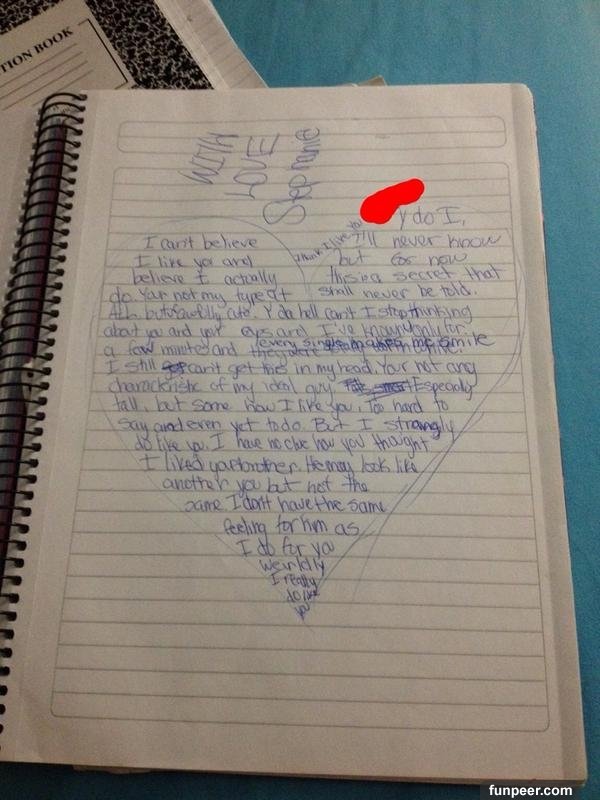 TION BOOK
WITH
LOVE
Stephanie
Y do I,
think I like you
I can't believe
I like you and
believe I actually
do. Your not my type at
All but beautifully cute. Y da hell can't I stop thinking
about you and your eyes and I've known only for
a few minutes and every single makes me smile
I'll never know
but for now
this is a secret that
shall never be told.
I still can't get this in my head. Your not any
characteristic of my ideal guy. Especially
tall, but some how I like you, Too hard to
say and even yet to do. But I strangly
do like you. I have no clue how you thought
I liked your brother. He may look like
another you but not the
same I don't have the same
feeling for him as
I do for you
weirldly
I really
do like
you
funpeer.com